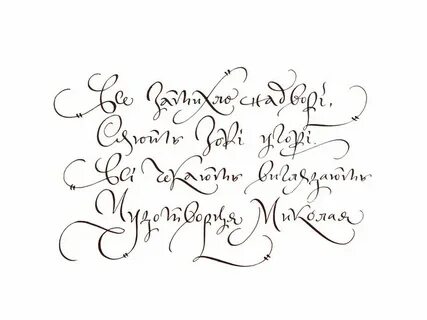 Все затихло надворі,
Сяють зорі угорі.
Всі чекають виглядають
Чудотворця Миколая